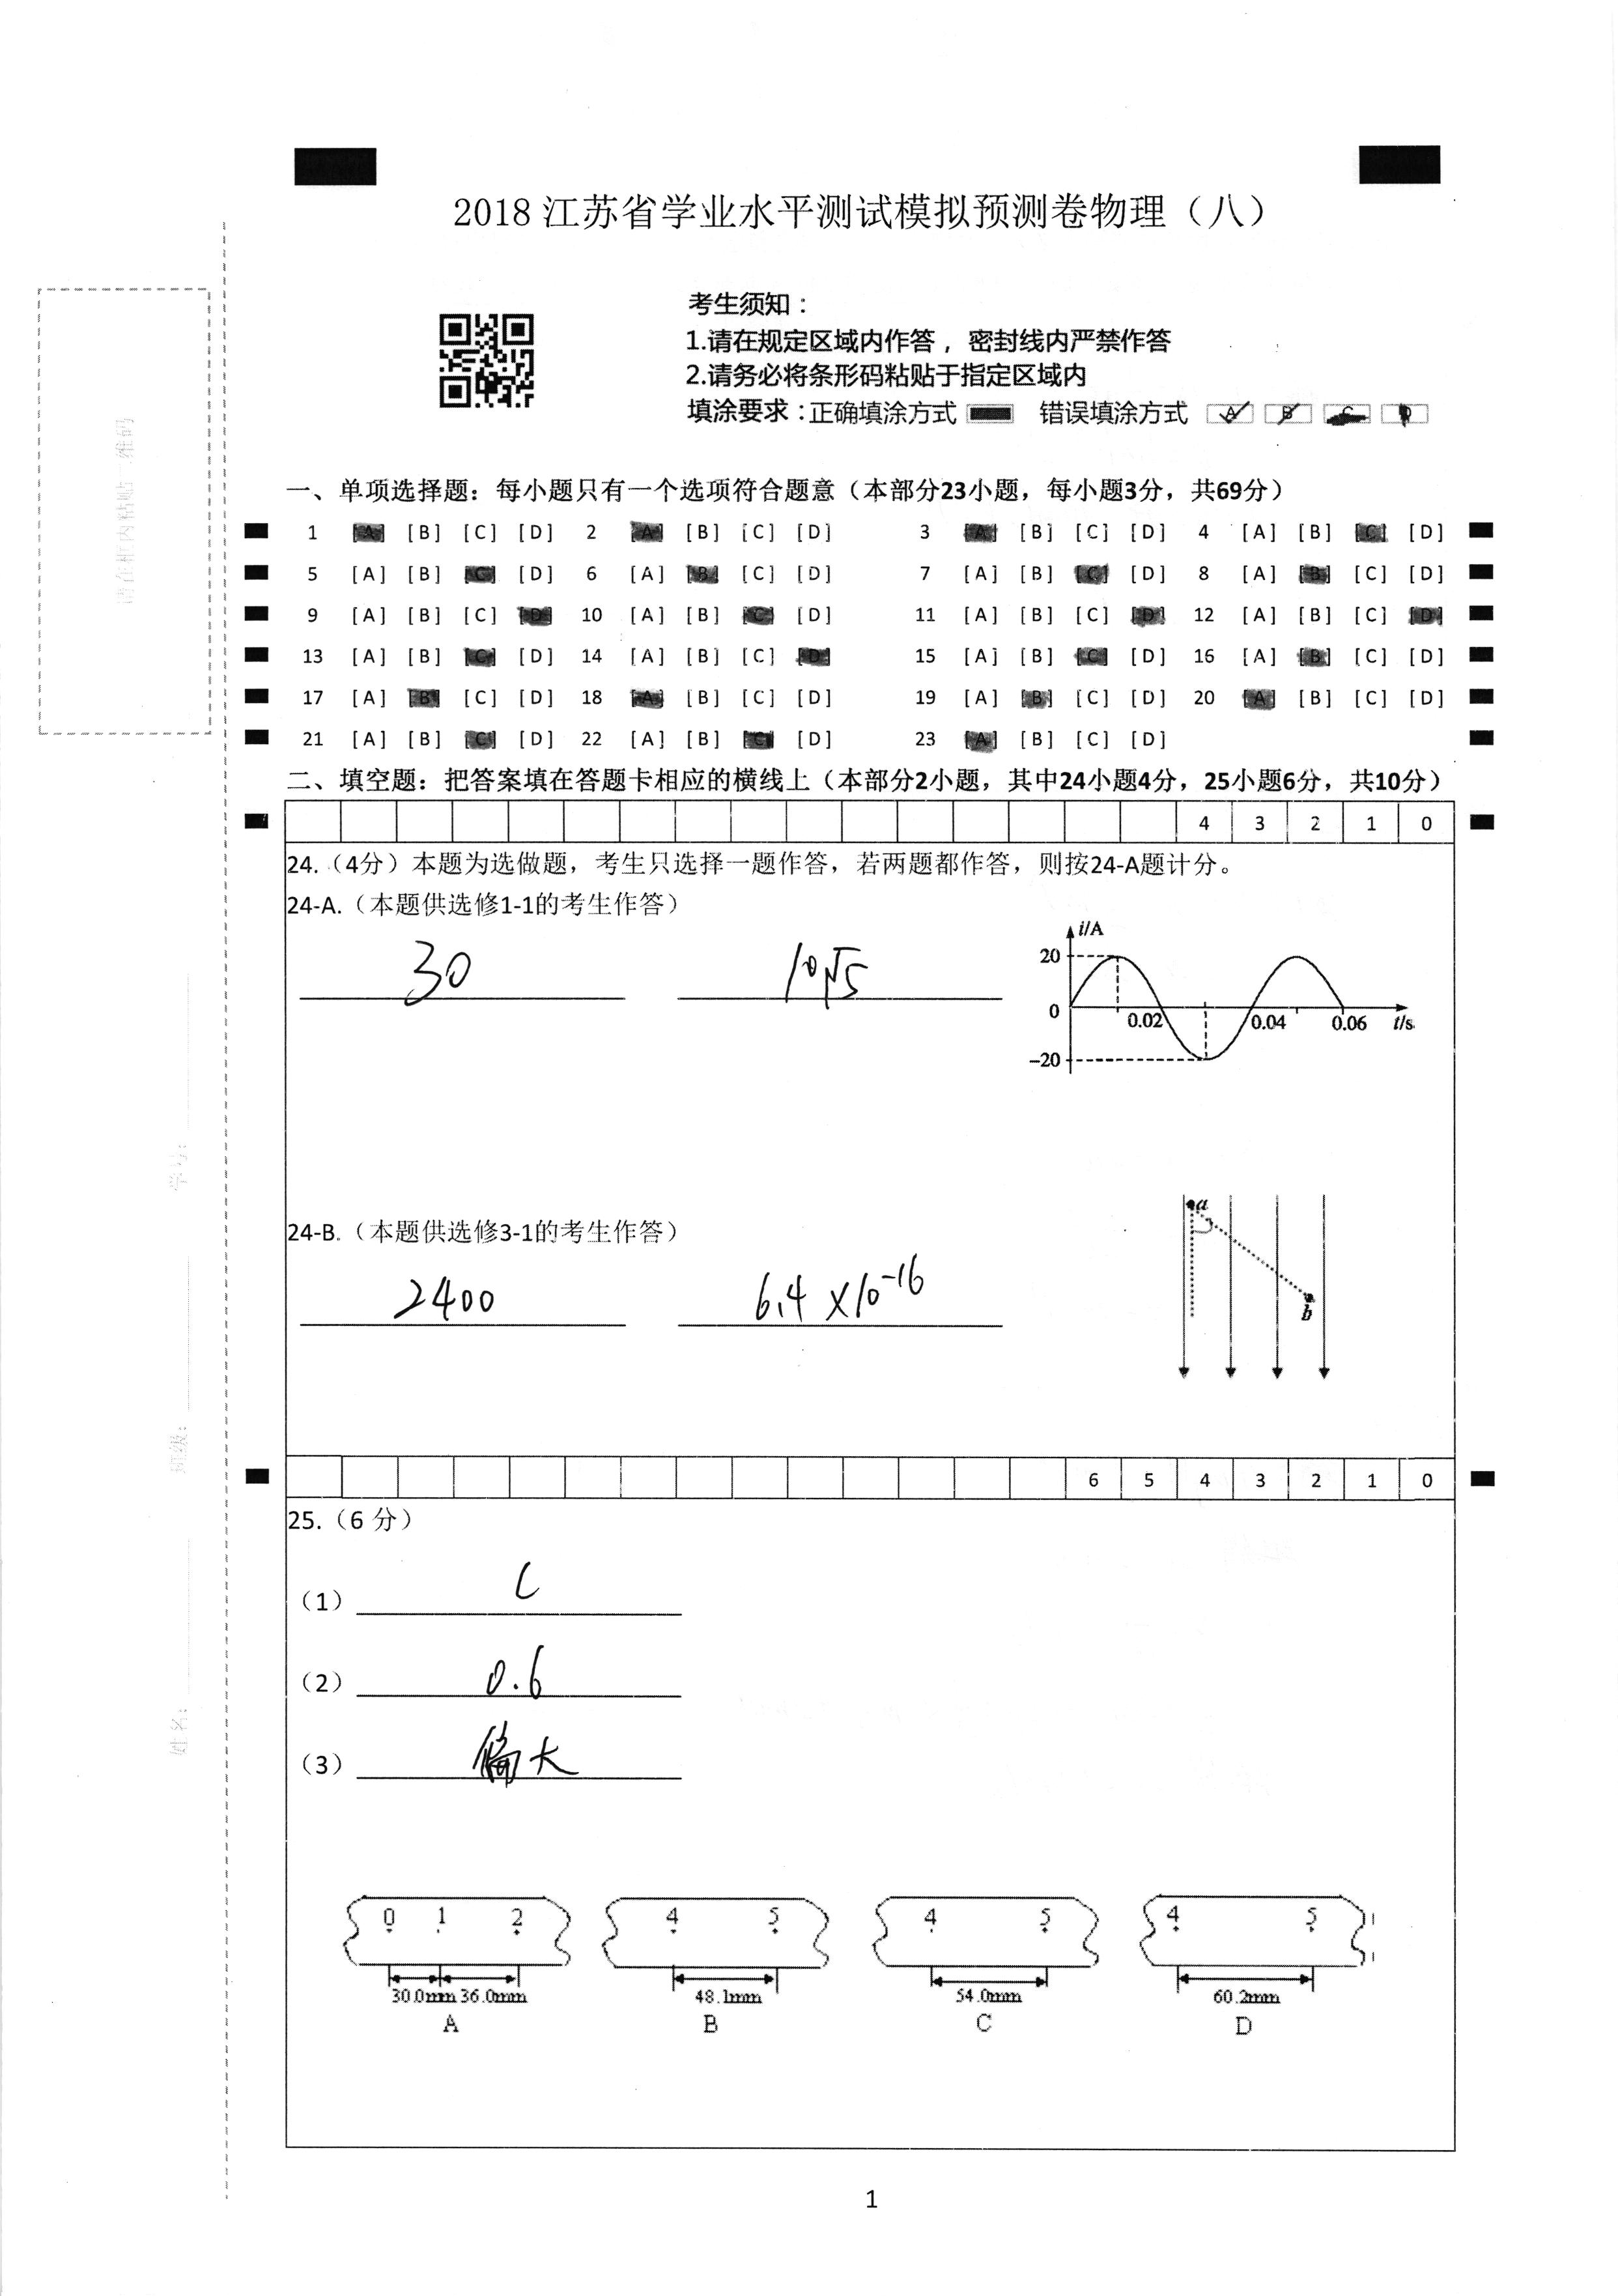 2018 江苏省学业水平测试模拟预测卷物理（八）
考生须知：
1.请在规定区域内作答，密封线内严禁作答
2.请务必将条形码粘贴于指定区域内
填涂要求：正确填涂方式 错误填涂方式 A B C D
请在框内粘贴二维码
一、单项选择题：每小题只有一个选项符合题意（本部分23小题，每小题3分，共69分）
1 [A] [B] [C] [D] 2 [A] [B] [C] [D] 3 [A] [B] [C] [D] 4 [A] [B] [C] [D]
5 [A] [B] [C] [D] 6 [A] [B] [C] [D] 7 [A] [B] [C] [D] 8 [A] [B] [C] [D]
9 [A] [B] [C] [D] 10 [A] [B] [C] [D] 11 [A] [B] [C] [D] 12 [A] [B] [C] [D]
13 [A] [B] [C] [D] 14 [A] [B] [C] [D] 15 [A] [B] [C] [D] 16 [A] [B] [C] [D]
17 [A] [B] [C] [D] 18 [A] [B] [C] [D] 19 [A] [B] [C] [D] 20 [A] [B] [C] [D]
21 [A] [B] [C] [D] 22 [A] [B] [C] [D] 23 [A] [B] [C] [D]
二、填空题：把答案填在答题卡相应的横线上（本部分2小题，其中24小题4分，25小题6分，共10分）
4 3 2 1 0
24.（4分）本题为选做题，考生只选择一题作答，若两题都作答，则按24-A题计分。
24-A.（本题供选修1-1的考生作答）
30 10√5
i/A
20
0 0.02 0.04 0.06 t/s
-20
学号：
24-B.（本题供选修3-1的考生作答）
2400 6.4×10⁻¹⁶
a
b
班级：
6 5 4 3 2 1 0
25.（6 分）
（1） C
（2） 0.6
（3） 偏大
姓名：
0 1 2 4 5 4 5 4 5
30.0mm 36.0mm 48.1mm 54.0mm 60.2mm
A B C D
1